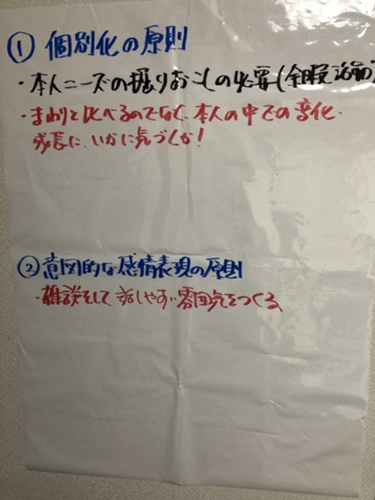 ① 個別化の原則
・本人ニーズの掘りおこしの必要(余暇活動)
・まわりと比べるのでなく、本人の中での変化、
成長に、いかに気づくか!
② 意図的な感情表現の原則
・雑談をして、話しやすい雰囲気をつくる